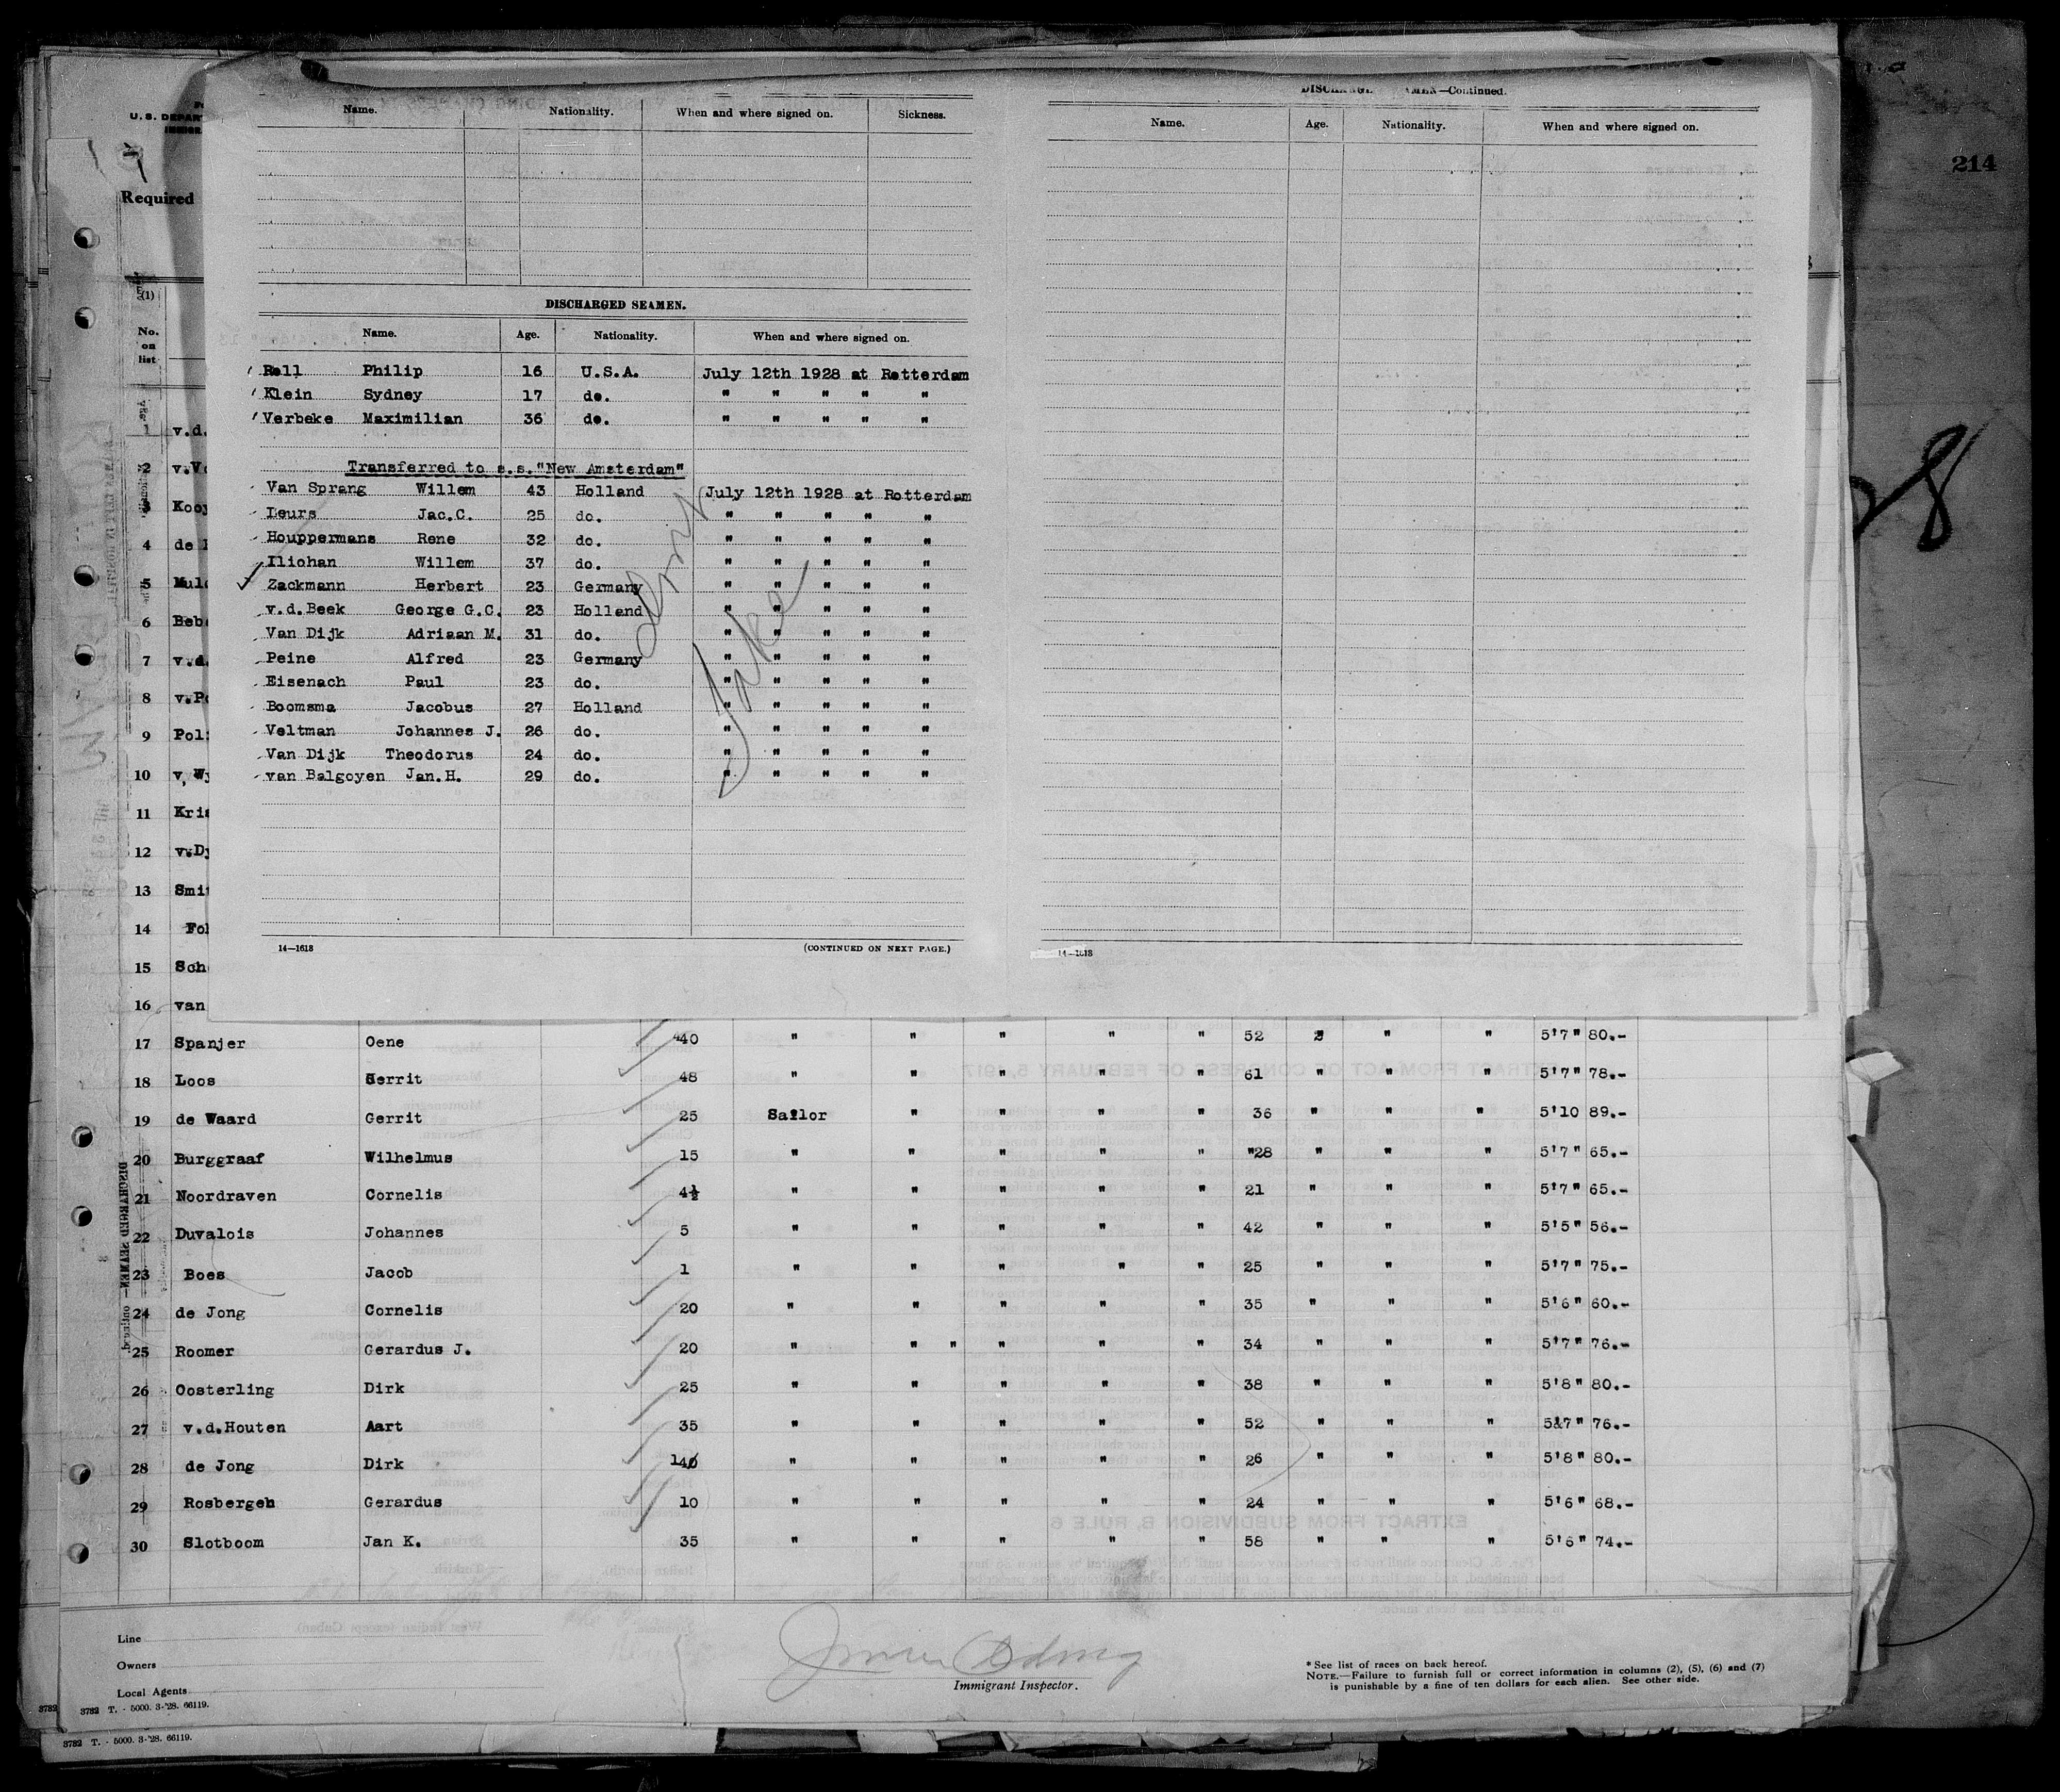 214
U. S. DEPAR
Required
Name. Nationality. When and where signed on. Sickness.
DISCHARGED SEAMEN.
Name. Age. Nationality. When and where signed on.
Rell Philip 16 U.S.A. July 12th 1928 at Rotterdam
Klein Sydney 17 do. " " " " "
Verbeke Maximilian 36 do. " " " " "
Transferred to s.s."New Amsterdam"
Van Sprang Willem 43 Holland July 12th 1928 at Rotterdam
Leurs Jac.C. 25 do. " " " " "
Houppermans Rene 32 do. " " " " "
Iliohan Willem 37 do. " " " " "
Zackmann Herbert 23 Germany " " " " "
v.d.Beek George G.C. 23 Holland " " " " "
Van Dijk Adriaan M. 31 do. " " " " "
Peine Alfred 23 Germany " " " " "
Eisenach Paul 23 do. " " " " "
Boomsma Jacobus 27 Holland " " " " "
Veltman Johannes J. 26 do. " " " " "
Van Dijk Theodorus 24 do. " " " " "
van Balgoyen Jan.H. 29 do. " " " " "
14—1618 (CONTINUED ON NEXT PAGE.)
—Continued.
Name. Age. Nationality. When and where signed on.
14—1618
(1)
No. on list
1 v.d.
2 v.V
3 Kooy
4 de
5 Mul
6 Beb
7 v.d.
8 v.P
9 Pol
10 v. Wy
11 Kris
12 v.Dy
13 Smi
14 Fol
15 Sch
16 van
17 Spanjer Oene 40 " " " " " 52 " " " 5'7" 80.-
18 Loos Gerrit 48 " " " " " 61 " " " 5'7" 78.-
19 de Waard Gerrit 25 Sailor " " " " 36 " " " 5'10 89.-
20 Burggraaf Wilhelmus 15 " " " " " "28 " " " 5'7" 65.-
21 Noordraven Cornelis 4½ " " " " " 21 " " " 5'7" 65.-
22 Duvalois Johannes 5 " " " " " 42 " " " 5'5" 56.-
23 Boes Jacob 1 " " " " " 25 " " " 5'7" 75.-
24 de Jong Cornelis 20 " " " " " 35 " " " 5'6" 60.-
25 Roomer Gerardus J. 20 " " " " " " 34 " " " 5'7" 76.-
26 Oosterling Dirk 25 " " " " " 38 " " " 5'8" 80.-
27 v.d.Houten Aart 35 " " " " " 52 " " " 5&7" 76.-
28 de Jong Dirk " " " " " 26 " " " 5'8" 80.-
29 Rosbergen Gerardus 10 " " " " " 24 " " " 5'6" 68.-
30 Slotboom Jan K. 35 " " " " " 58 " " " 5'6" 74.-
Line
Owners
Local Agents
Immigrant Inspector.
* See list of races on back hereof.
NOTE.—Failure to furnish full or correct information in columns (2), (5), (6) and (7)
is punishable by a fine of ten dollars for each alien. See other side.
3782 3782 T. - 5000. 3-'28. 66119.
3782 T. - 5000. 3-'28. 66119.